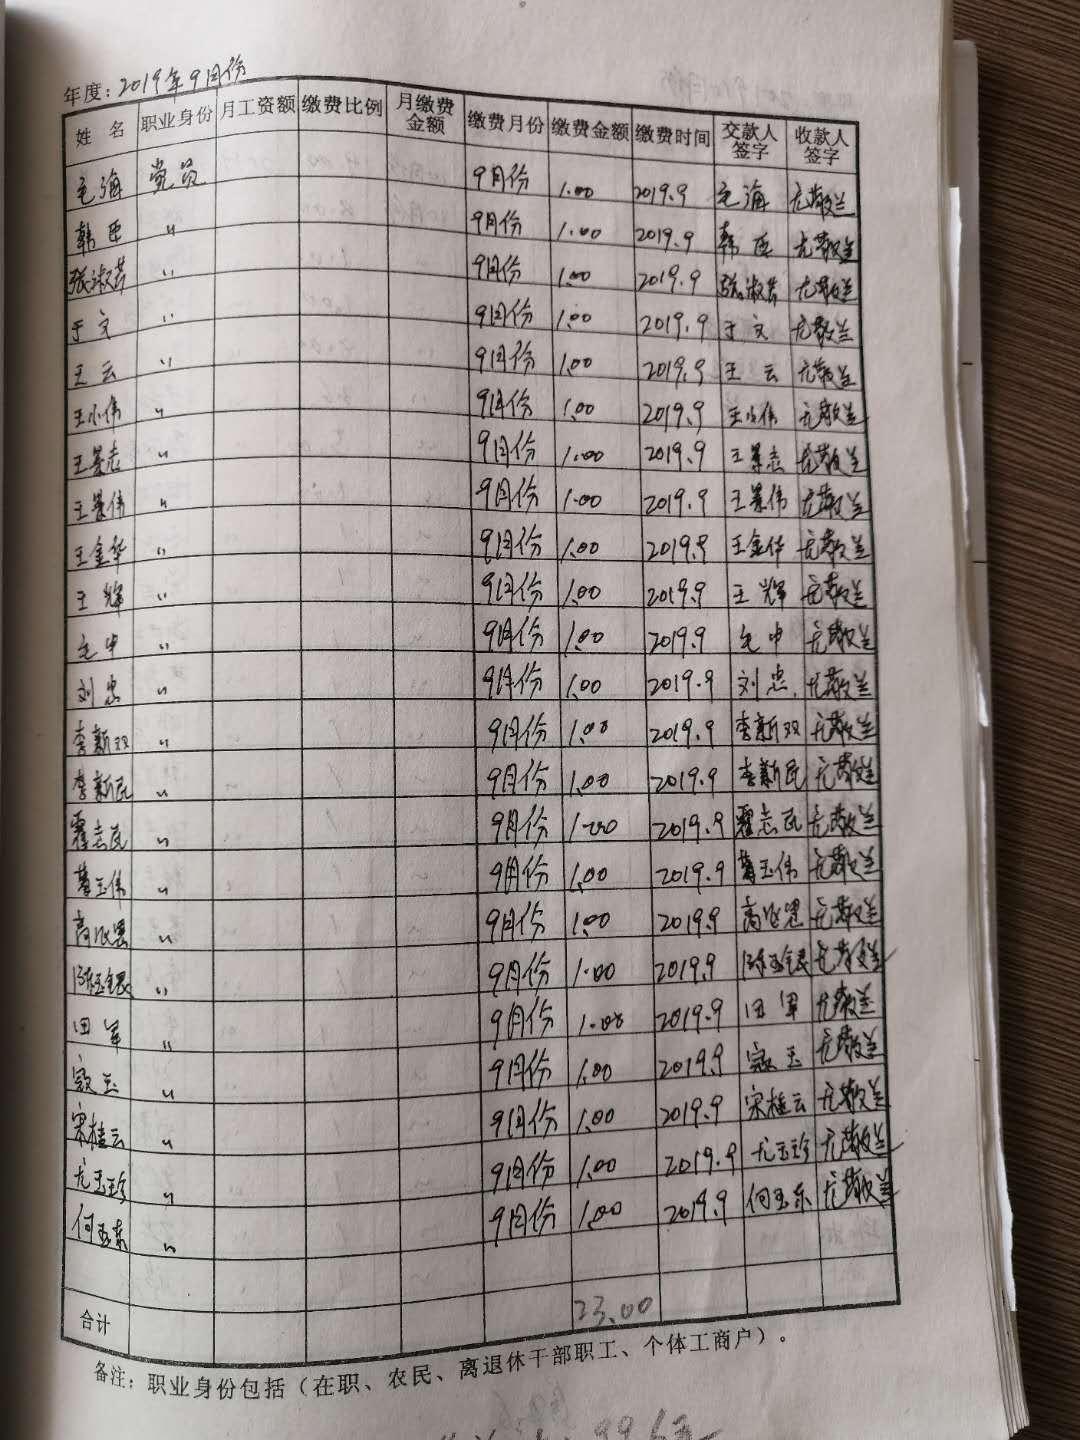 年度：2019年9月份
姓 名 职业身份 月工资额 缴费比例 月缴费金额 缴费月份 缴费金额 缴费时间 交款人签字 收款人签字
海 党员 9月份 1.00 2019.9 海
韩臣 〃 9月份 1.00 2019.9 韩臣
张淑芬 〃 9月份 1.00 2019.9 张淑芬
于文 〃 9月份 1.00 2019.9 于文
王云 〃 9月份 1.00 2019.9 王云
王小伟 〃 9月份 1.00 2019.9 王小伟
王景志 〃 9月份 1.00 2019.9 王景志
王景伟 〃 9月份 1.00 2019.9 王景伟
王金华 〃 9月份 1.00 2019.9 王金华
王辉 〃 9月份 1.00 2019.9 王辉
申 〃 9月份 1.00 2019.9 申
刘忠 〃 9月份 1.00 2019.9 刘忠
李新双 〃 9月份 1.00 2019.9 李新双
李新民 〃 9月份 1.00 2019.9 李新民
志民 〃 9月份 1.00 2019.9 志民
玉伟 〃 9月份 1.00 2019.9 玉伟
高 〃 9月份 1.00 2019.9 高
陈玉银 〃 9月份 1.00 2019.9 陈玉银
田军 〃 9月份 1.00 2019.9 田军
寇玉 〃 9月份 1.00 2019.9 寇玉
宋桂云 〃 9月份 1.00 2019.9 宋桂云
尤玉珍 〃 9月份 1.00 2019.9 尤玉珍
何玉东 〃 9月份 1.00 2019.9 何玉东
合计 23.00
备注：职业身份包括（在职、农民、离退休干部职工、个体工商户）。